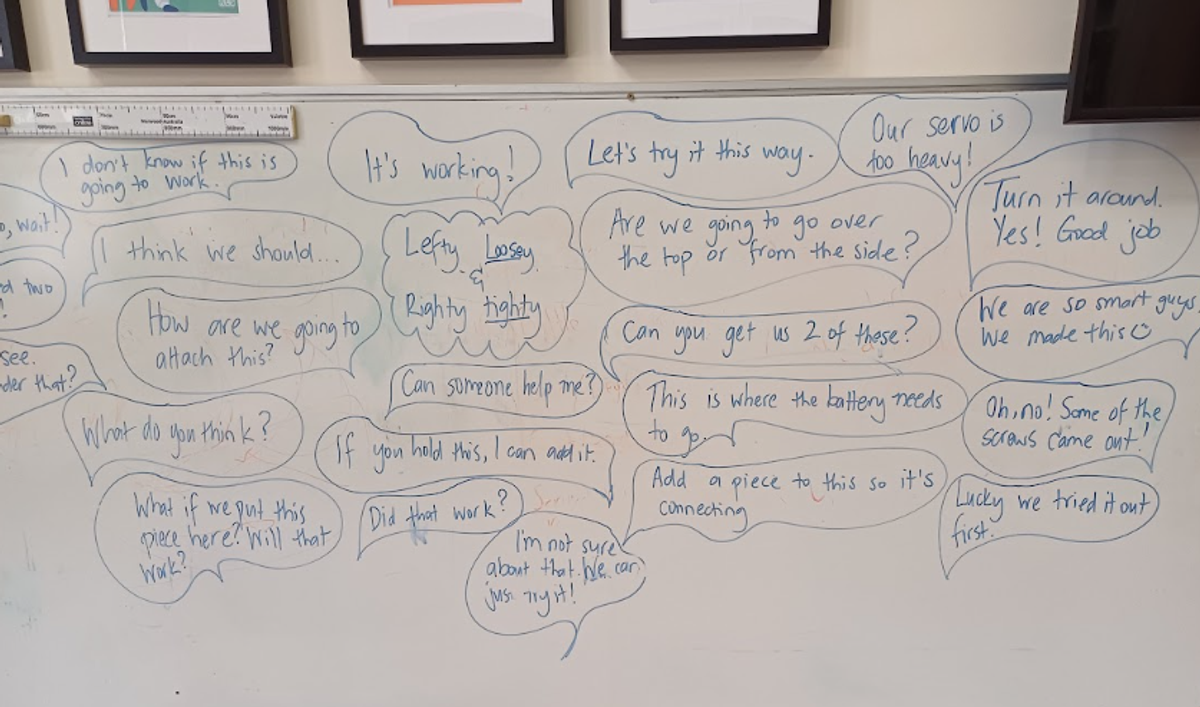 I don't know if this is
going to work.
It's working!
Let's try it this way.
Our servo is
too heavy!
Turn it around.
Yes! Good job
wait!
I think we should...
Lefty Loosey
&
Righty tighty
Are we going to go over
the top or from the side?
two
How are we going to
attach this?
Can you get us 2 of these?
We are so smart guys
We made this
see.
that?
Can someone help me?
This is where the battery needs
to go.
Oh, no! Some of the
screws came out!
What do you think?
If you hold this, I can add it.
Add a piece to this so it's
connecting
Lucky we tried it out
first.
What if we put this
piece here? Will that
work?
Did that work?
I'm not sure
about that. We can
just try it!